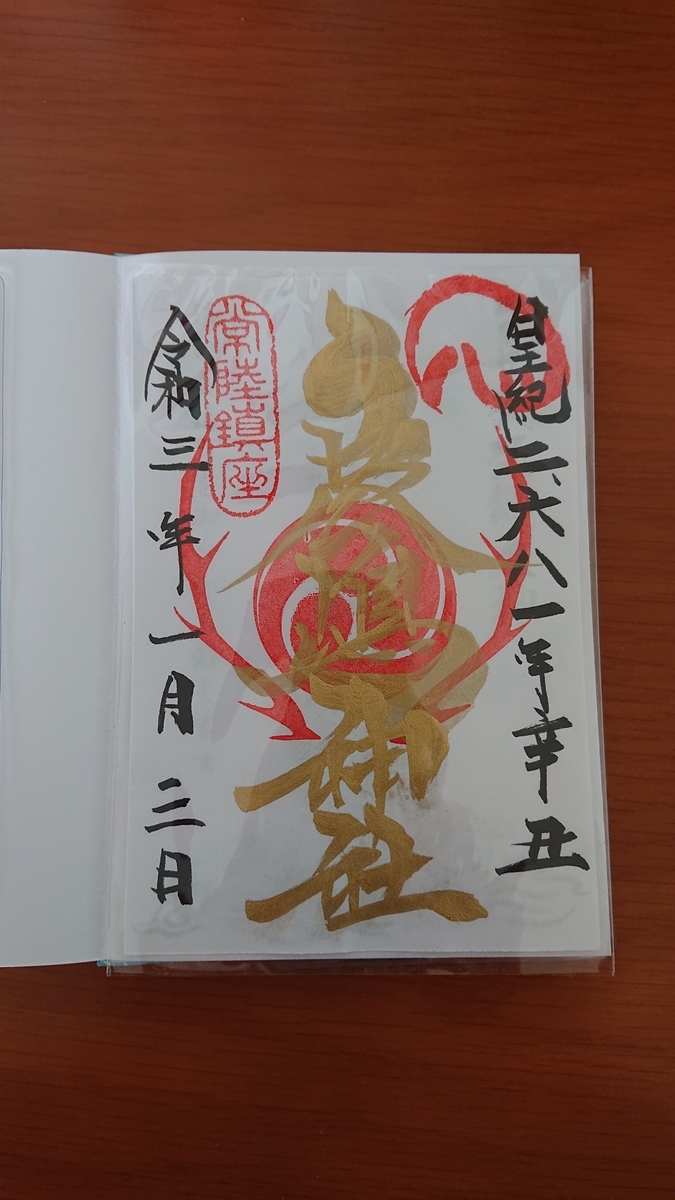 皇紀二六八一年辛丑
神社
常陸鎮座
令和三年一月三日